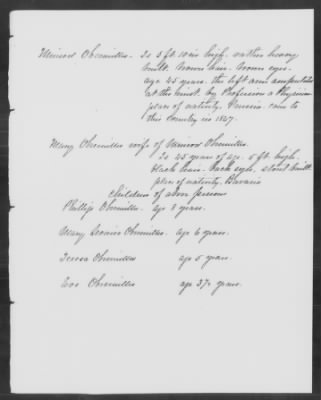 Obermiller. Is 5 ft. 10 in high. rather heavy
built. brown hair. brown eyes.
age 45 years. the left arm amputated
at the wrist. by Profession a Physician
place of nativity. came to
this Country in 1847.
Mary Obermiller wife of Obermiller.
Is 45 years of age. 5 ft. high.
black hair. dark eyes, stout built.
place of nativity. Bavaria
Children of above persons
Phillip Obermiller. age 8 years.
Mary Obermiller. age 6 years.
Teresa Obermiller age 5 years.
Eve Obermiller age years.